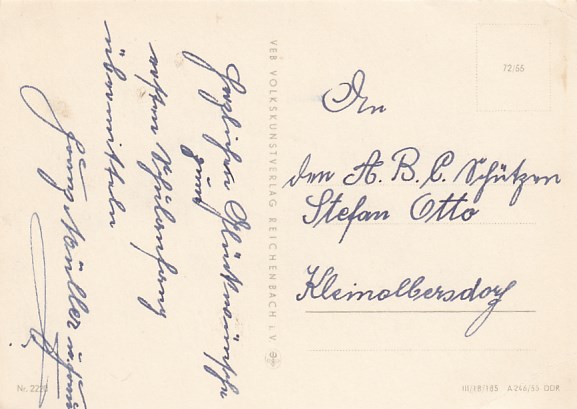 Herzlichen Glückwunsch
zum
ersten Schulanfang
übermitteln
Nr. 2220
VEB VOLKSKUNSTVERLAG REICHENBACH I.V.
72/65
An
den A. B. C. Schützen
Stefan Otto
Kleinolbersdorf
III/18/185 A 246/65 DDR